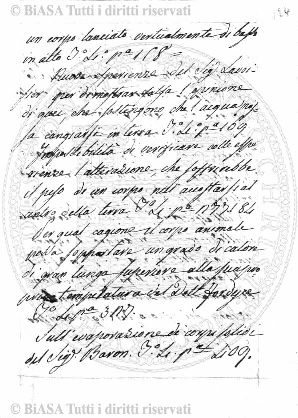 © BiASA Tutti i diritti riservati
24
un corpo lanciato verticalmente di basso
in alto T.º 1.º p.ª 158 =
Nuova sperienza del Sig.r Lavoi-
sier per dimostrar falsa l'opinione
di quei, che sostengono che l'acqua pos-
sa cangiarsi in terra T.º 1.º p.ª 109
Impossibilità di verificare colle espe-
rienze l'alterazione, che soffrirebbe
il peso di un corpo nell'accostarsi al
centro della terra
Per qual cagione il corpo animale
possa sopportare un grado di calore
di gran lunga superiore alla sua pro-
pria temperatura del Dott.r Fordyce
T.º 1.º p.ª 317.
Sull'evaporazione de' corpi solidi
del Sig.r Baron. T.º 1.º p.ª 409.
© BiASA Tutti i diritti riservati